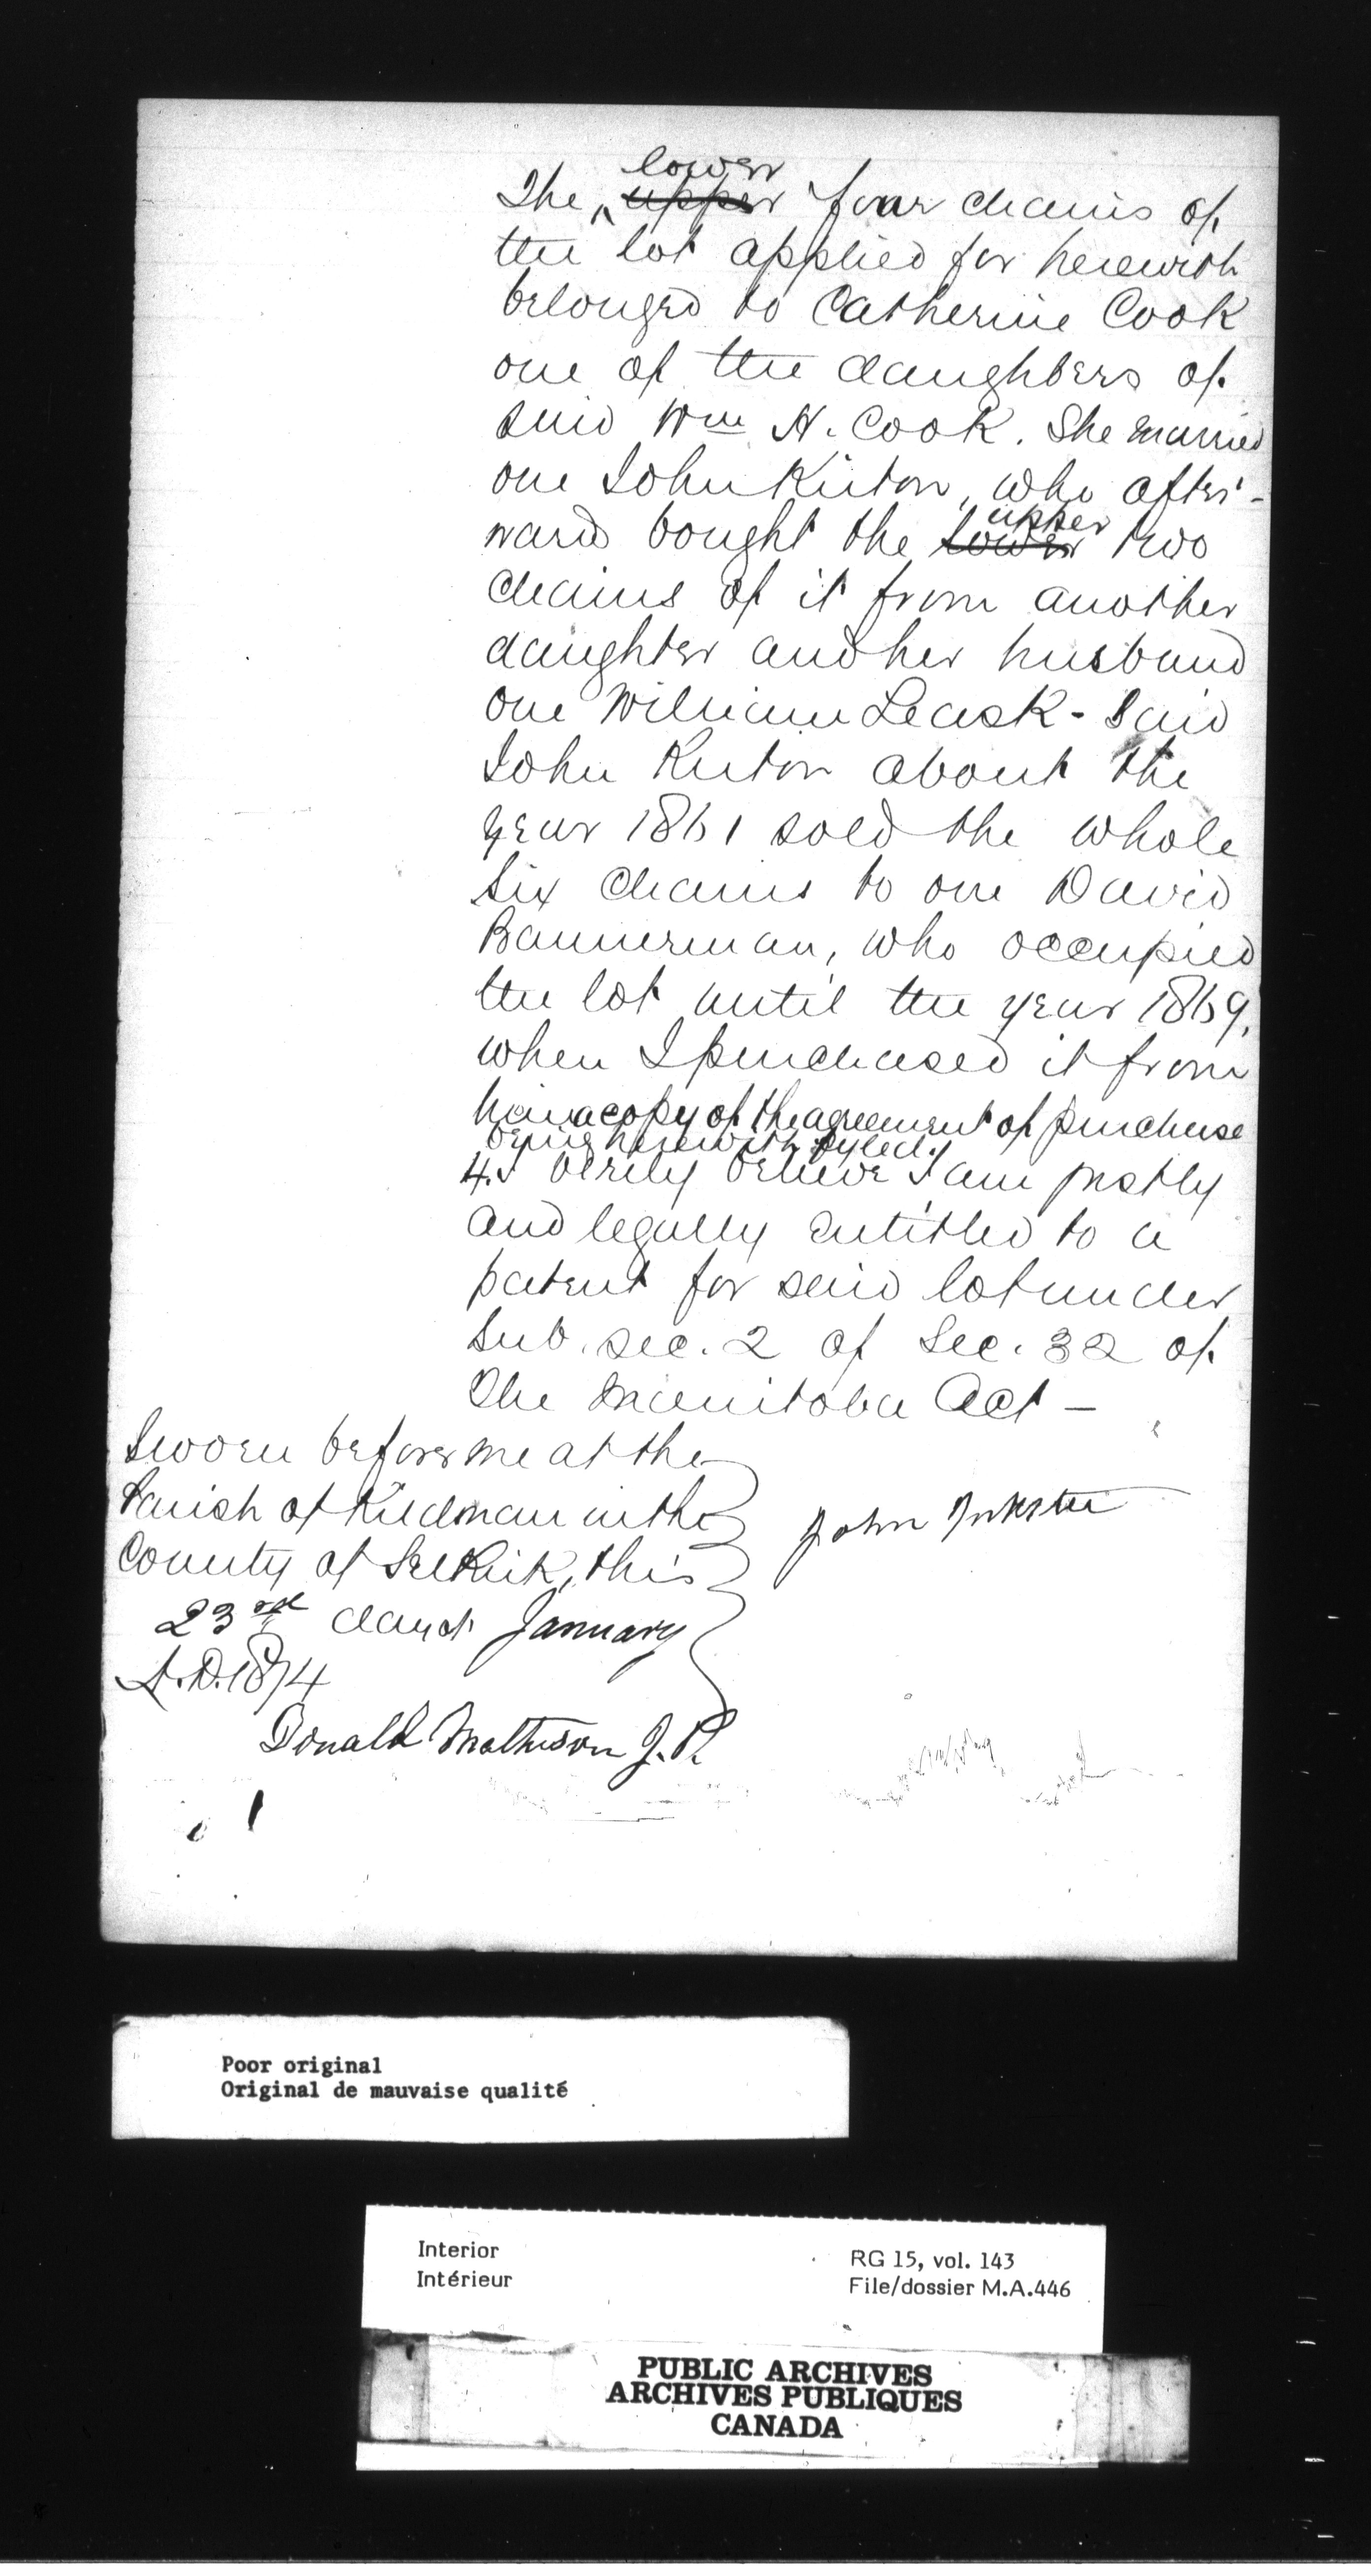 The ^ lower upper four chains of
the lot applied for herewith
belonged to Catherine Cook
one of the daughters of
said Wm H. Cook. She married
one John Kirton, who after-
wards bought the lower upper two
chains of it from another
daughter and her husband
one William Leask - Said
John Kirton about the
year 1861 sold the whole
six chains to one David
Bannerman, who occupied
the lot until the year 1869,
when I purchased it from
him a copy of the agreement of purchase
being herewith fyled.
4. I verily believe I am justly
and legally entitled to a
patent for said lot under
Sub. sec. 2 of Sec. 32 of
The Manitoba Act -
Sworn before me at the
Parish of Kildonan in the
County of Selkirk, this
23rd day of January
A.D. 1874
John Inkster
Donald Matheson J.P.
Poor original
Original de mauvaise qualité
Interior
Intérieur
RG 15, vol. 143
File/dossier M.A.446
PUBLIC ARCHIVES
ARCHIVES PUBLIQUES
CANADA